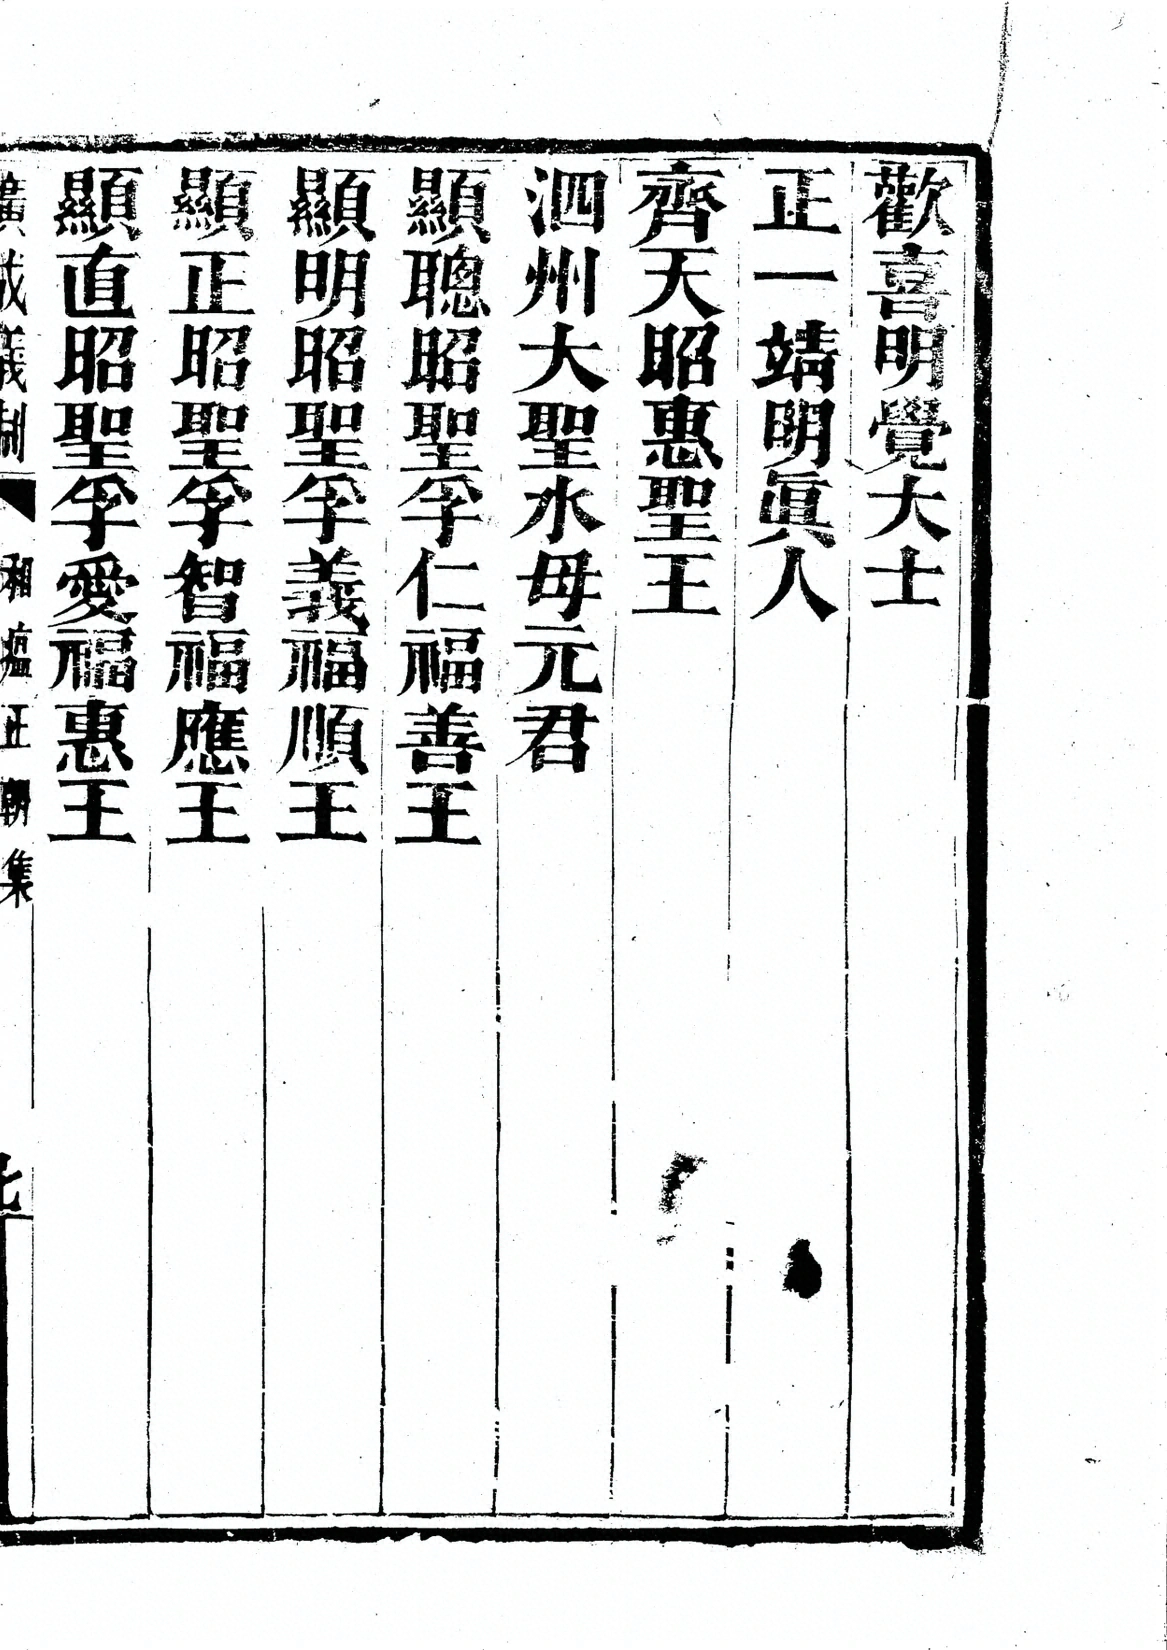 歡喜明覺大士
正一靖明眞人
齊天昭惠聖王
泗州大聖水母元君
顯聰昭聖孚仁福善王
顯明昭聖孚義福順王
顯正昭聖孚智福應王
顯直昭聖孚愛福惠王
廣成儀制
和瘟正朝集
七